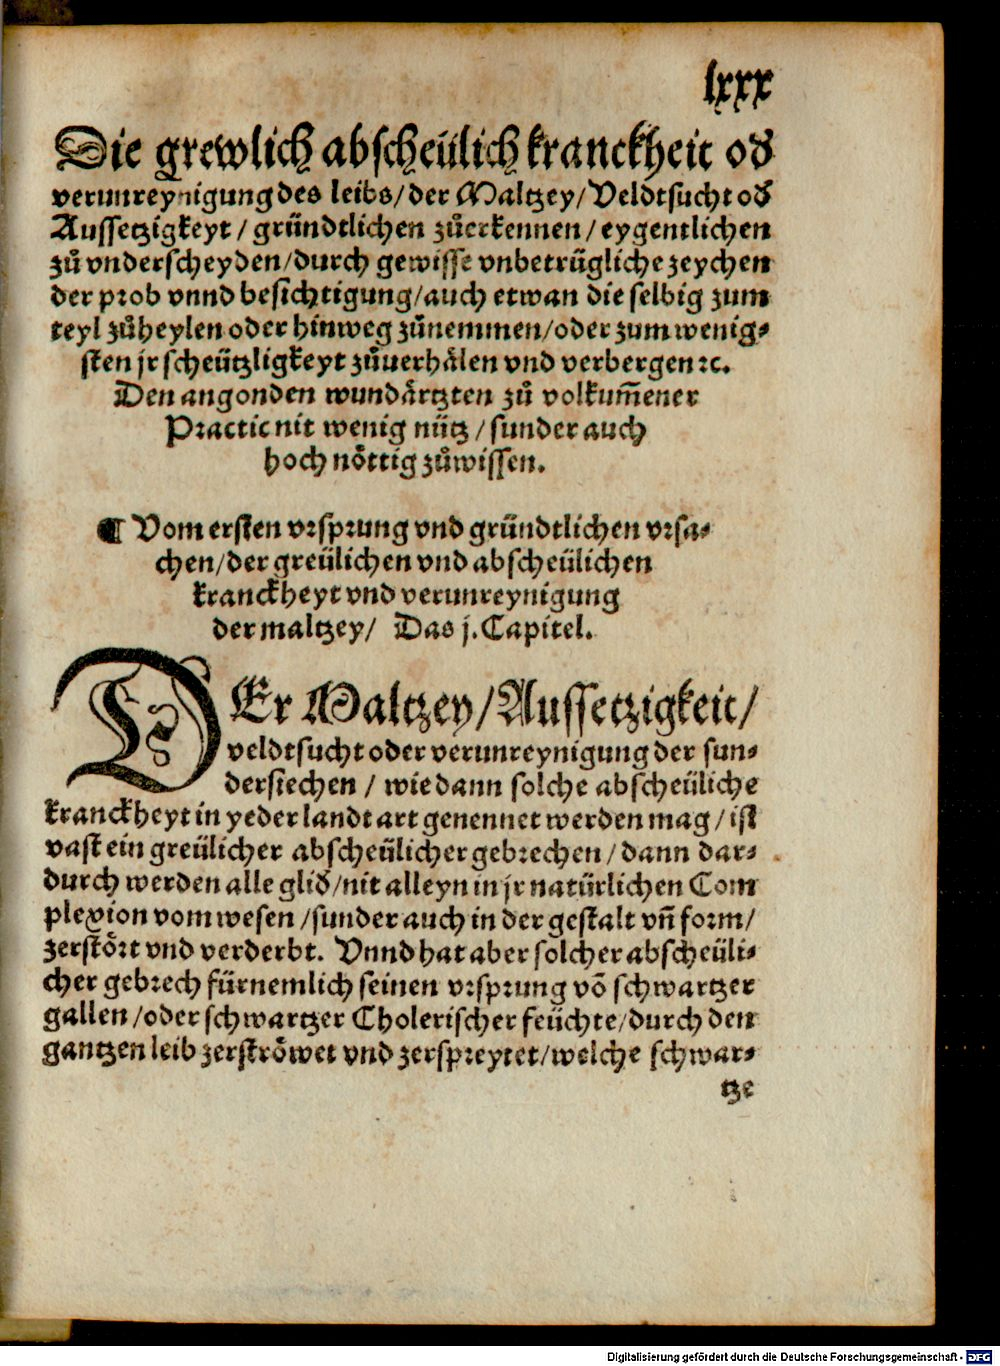 lxxx
Die grewlich abscheülich kranckheit od
verunreynigung des leibs/der Maltzey/Veldtsucht od
Aussetzigkeyt / gründtlichen zůerkennen / eygentlichen
zů vnderscheyden/durch gewisse vnbetrügliche zeychen
der prob vnnd besichtigung/auch etwan die selbig zum
teyl zůheylen oder hinweg zůnemmen/oder zum wenig⸗
sten jr scheützligkeyt zůuerhålen vnd verbergen ꝛc.
Den angonden wundårtzten zů volkum̃ener
Practic nit wenig nütz / sunder auch
hoch nöttig zůwissen.
¶ Vom ersten vrsprung vnd gründtlichen vrsa⸗
chen/der greülichen vnd abscheülichen
kranckheyt vnd verunreynigung
der maltzey/ Das j. Capitel.
DEr Maltzey/Aussetzigkeit/
veldtsucht oder verunreynigung der sun⸗
dersiechen / wie dann solche abscheüliche
kranckheyt in yeder landt art genennet werden mag / ist
vast ein greülicher abscheülicher gebrechen / dann dar⸗
durch werden alle glid/nit alleyn in jr natürlichen Com
plexion vom wesen /sunder auch in der gestalt vñ form/
zerstört vnd verderbt. Vnnd hat aber solcher abscheüli⸗
cher gebrech fürnemlich seinen vrsprung võ schwartzer
gallen /oder schwartzer Cholerischer feüchte/durch den
gantzen leib zerströwet vnd zerspreytet/welche schwar⸗
tze
Digitalisierung gefördert durch die Deutsche Forschungsgemeinschaft - DFG